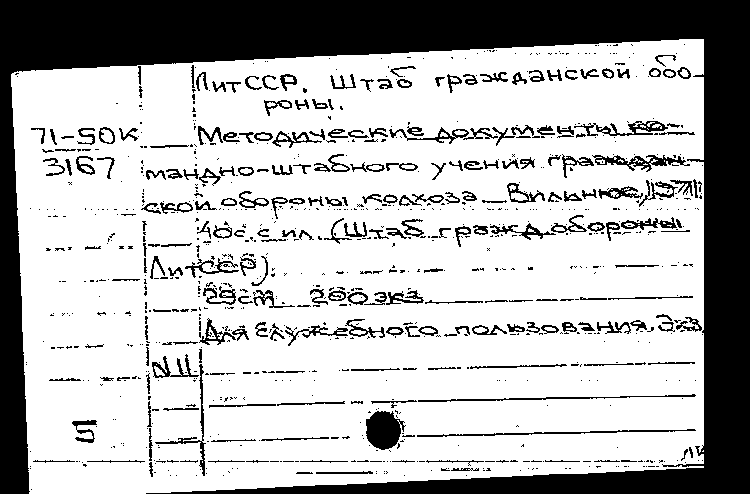 ЛитССР. Штаб гражданской обо-
роны.
71-50к
3167
Методические документы ко-
мандно-штабного учения граждан-
ской обороны колхоза. Вильнюс, 1971.
40с. с ил. (Штаб гражд. обороны
ЛитССР).
29см. 200 экз.
Для служебного пользования. Экз.
N 11
5